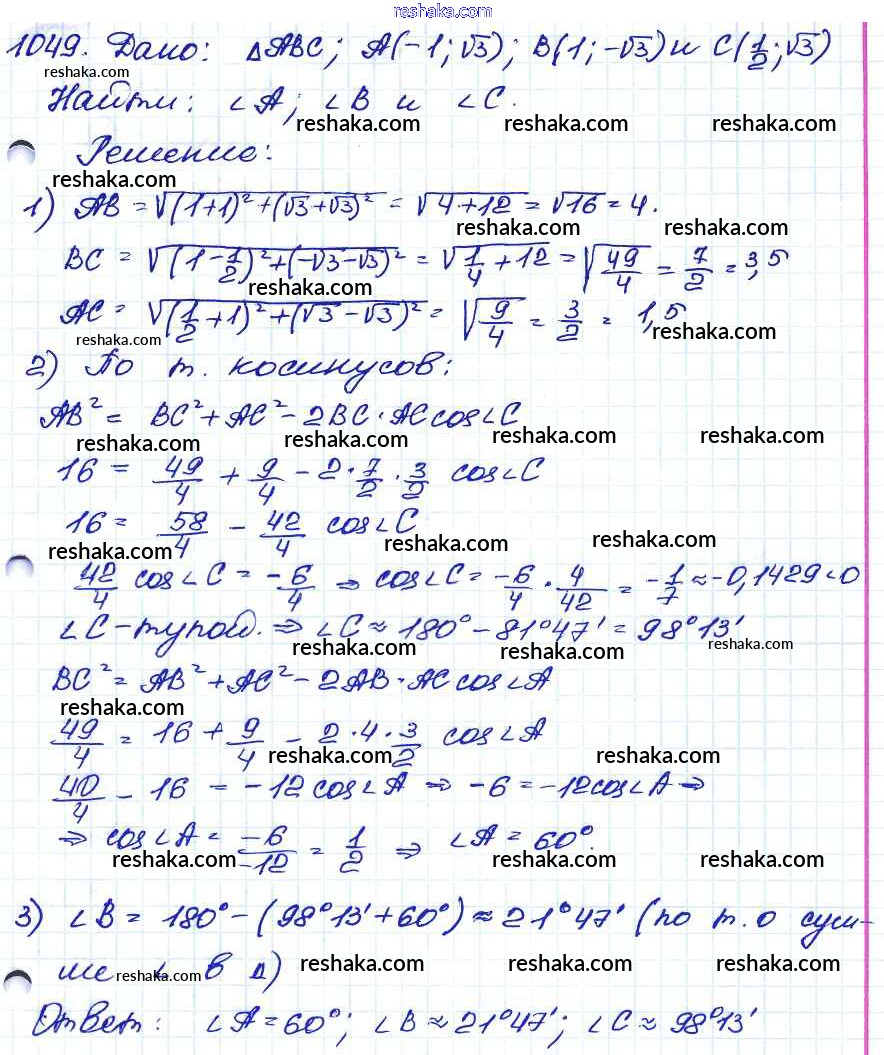 reshaka.com
1049. Дано: ΔABC; A(-1; √3); B(1; -√3) и C(1/2; √3)
reshaka.com
Найти: ∠A; ∠B и ∠C.
reshaka.com reshaka.com reshaka.com
Решение:
reshaka.com
1) AB = √((1+1)² + (√3+√3)²) = √(4+12) = √16 = 4.
reshaka.com reshaka.com
BC = √((1-1/2)² + (-√3-√3)²) = √(1/4+12) = √(49/4) = 7/2 = 3,5
reshaka.com
AC = √((1/2+1)² + (√3-√3)²) = √(9/4) = 3/2 = 1,5
reshaka.com reshaka.com
2) По т. косинусов:
AB² = BC² + AC² - 2BC·AC cos∠C
reshaka.com reshaka.com reshaka.com reshaka.com
16 = 49/4 + 9/4 - 2·7/2·3/2 cos∠C
16 = 58/4 - 42/4 cos∠C
reshaka.com reshaka.com reshaka.com
42/4 cos∠C = -6/4 ⇒ cos∠C = -6/4 · 4/42 = -1/7 ≈ -0,1429 < 0
∠C - тупой. ⇒ ∠C ≈ 180° - 81°47' = 98°13'
reshaka.com reshaka.com reshaka.com
BC² = AB² + AC² - 2AB·AC cos∠A
reshaka.com
49/4 = 16 + 9/4 - 2·4·3/2 cos∠A
reshaka.com reshaka.com
40/4 - 16 = -12cos∠A ⇒ -6 = -12cos∠A ⇒
⇒ cos∠A = -6/-12 = 1/2 ⇒ ∠A = 60°.
reshaka.com reshaka.com reshaka.com
3) ∠B = 180° - (98°13' + 60°) ≈ 21°47' (по т. о сум-
ме ∠ в Δ)
reshaka.com reshaka.com reshaka.com reshaka.com
Ответ: ∠A = 60°; ∠B ≈ 21°47'; ∠C ≈ 98°13'